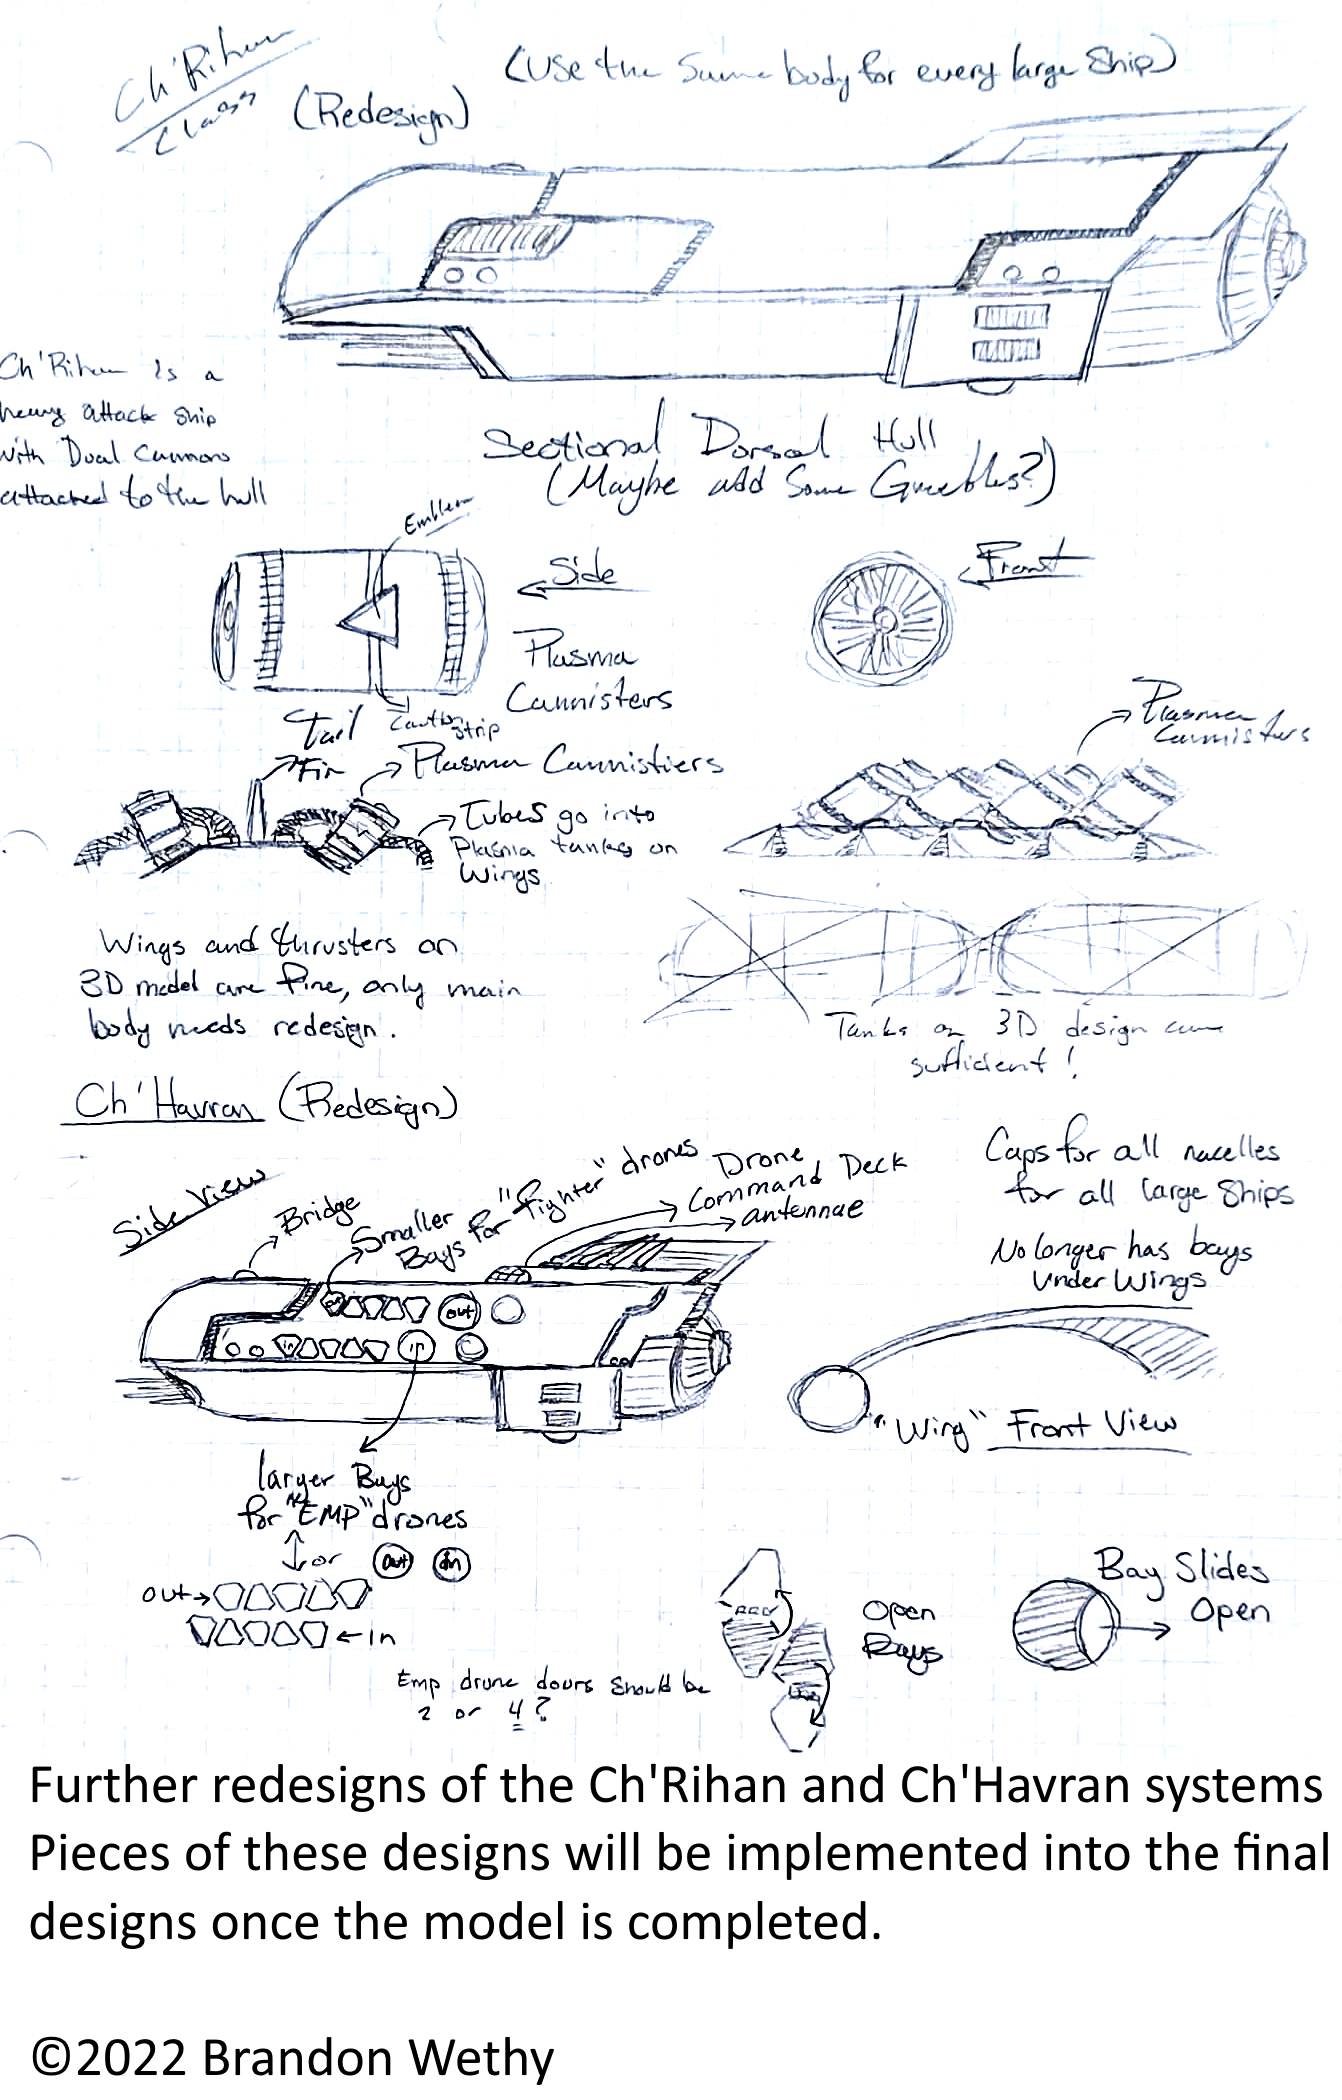 Ch'Rihan
Class
(Redesign)
(Use the same body for every large ship)
Ch'Rihan is a
heavy attack ship
with Dual Cannons
attached to the hull
Sectional Dorsal Hull
(Maybe add some Greebles?)
Emblem
Side
Front
Plasma
Cannisters
Caution
strip
Tail
Fin
Plasma Cannistiers
Tubes go into
Plasma tanks on
Wings
Plasma
Cannisters
Wings and thrusters on
3D model are fine, only main
body needs redesign.
Tanks on 3D design are
sufficient!
Ch'Havran (Redesign)
Side View
Bridge
Smaller
Bays for "fighter" drones
Drone
Command Deck
antennae
Caps for all nacelles
for all large ships
No longer has bays
Under Wings
out
in
"Wing" Front View
larger Bays
for "EMP" drones
or
out
in
out
in
Open
Bays
Bay Slides
Open
Emp drone doors should be
2 or 4?
Further redesigns of the Ch'Rihan and Ch'Havran systems
Pieces of these designs will be implemented into the final
designs once the model is completed.
©2022 Brandon Wethy